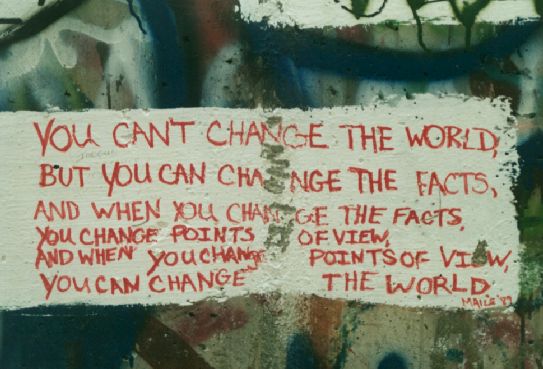 YOU CAN'T CHANGE THE WORLD,
BUT YOU CAN CHANGE THE FACTS,
AND WHEN YOU CHANGE THE FACTS,
YOU CHANGE POINTS OF VIEW,
AND WHEN YOU CHANGE POINTS OF VIEW,
YOU CAN CHANGE THE WORLD